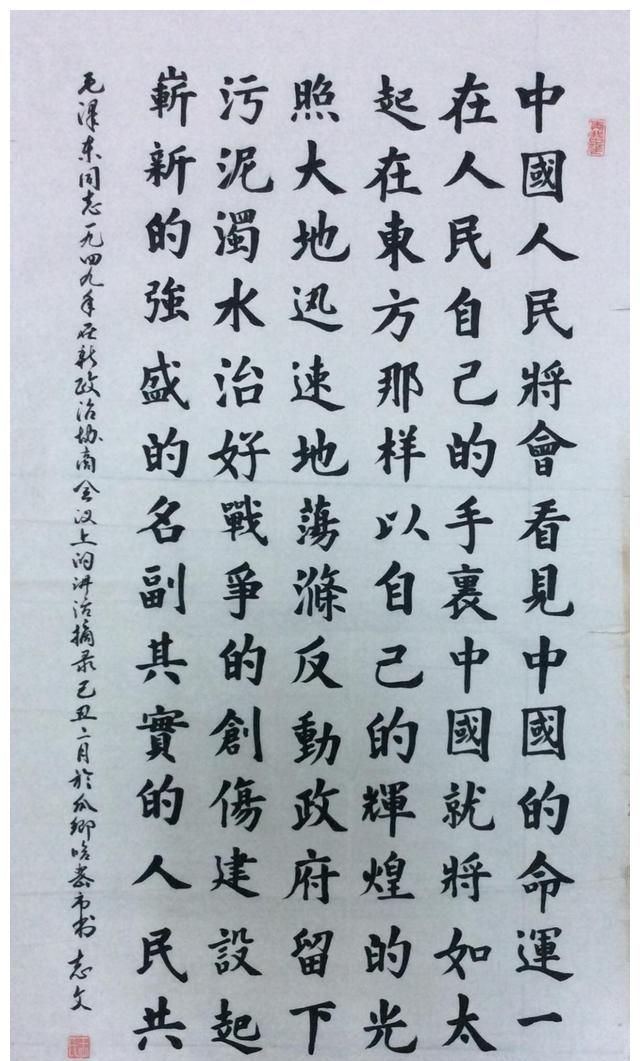 中國人民將會看見中國的命運一
在人民自己的手裏中國就將如太
起在東方那样以自己的輝煌的光
照大地迅速地蕩滌反動政府留下
污泥濁水治好戰爭的創傷建設起
嶄新的強盛的名副其實的人民共
毛泽东同志一九四九年在新政治协商会议上的讲话摘录己丑二月於瓜鄉哈密市书 志文